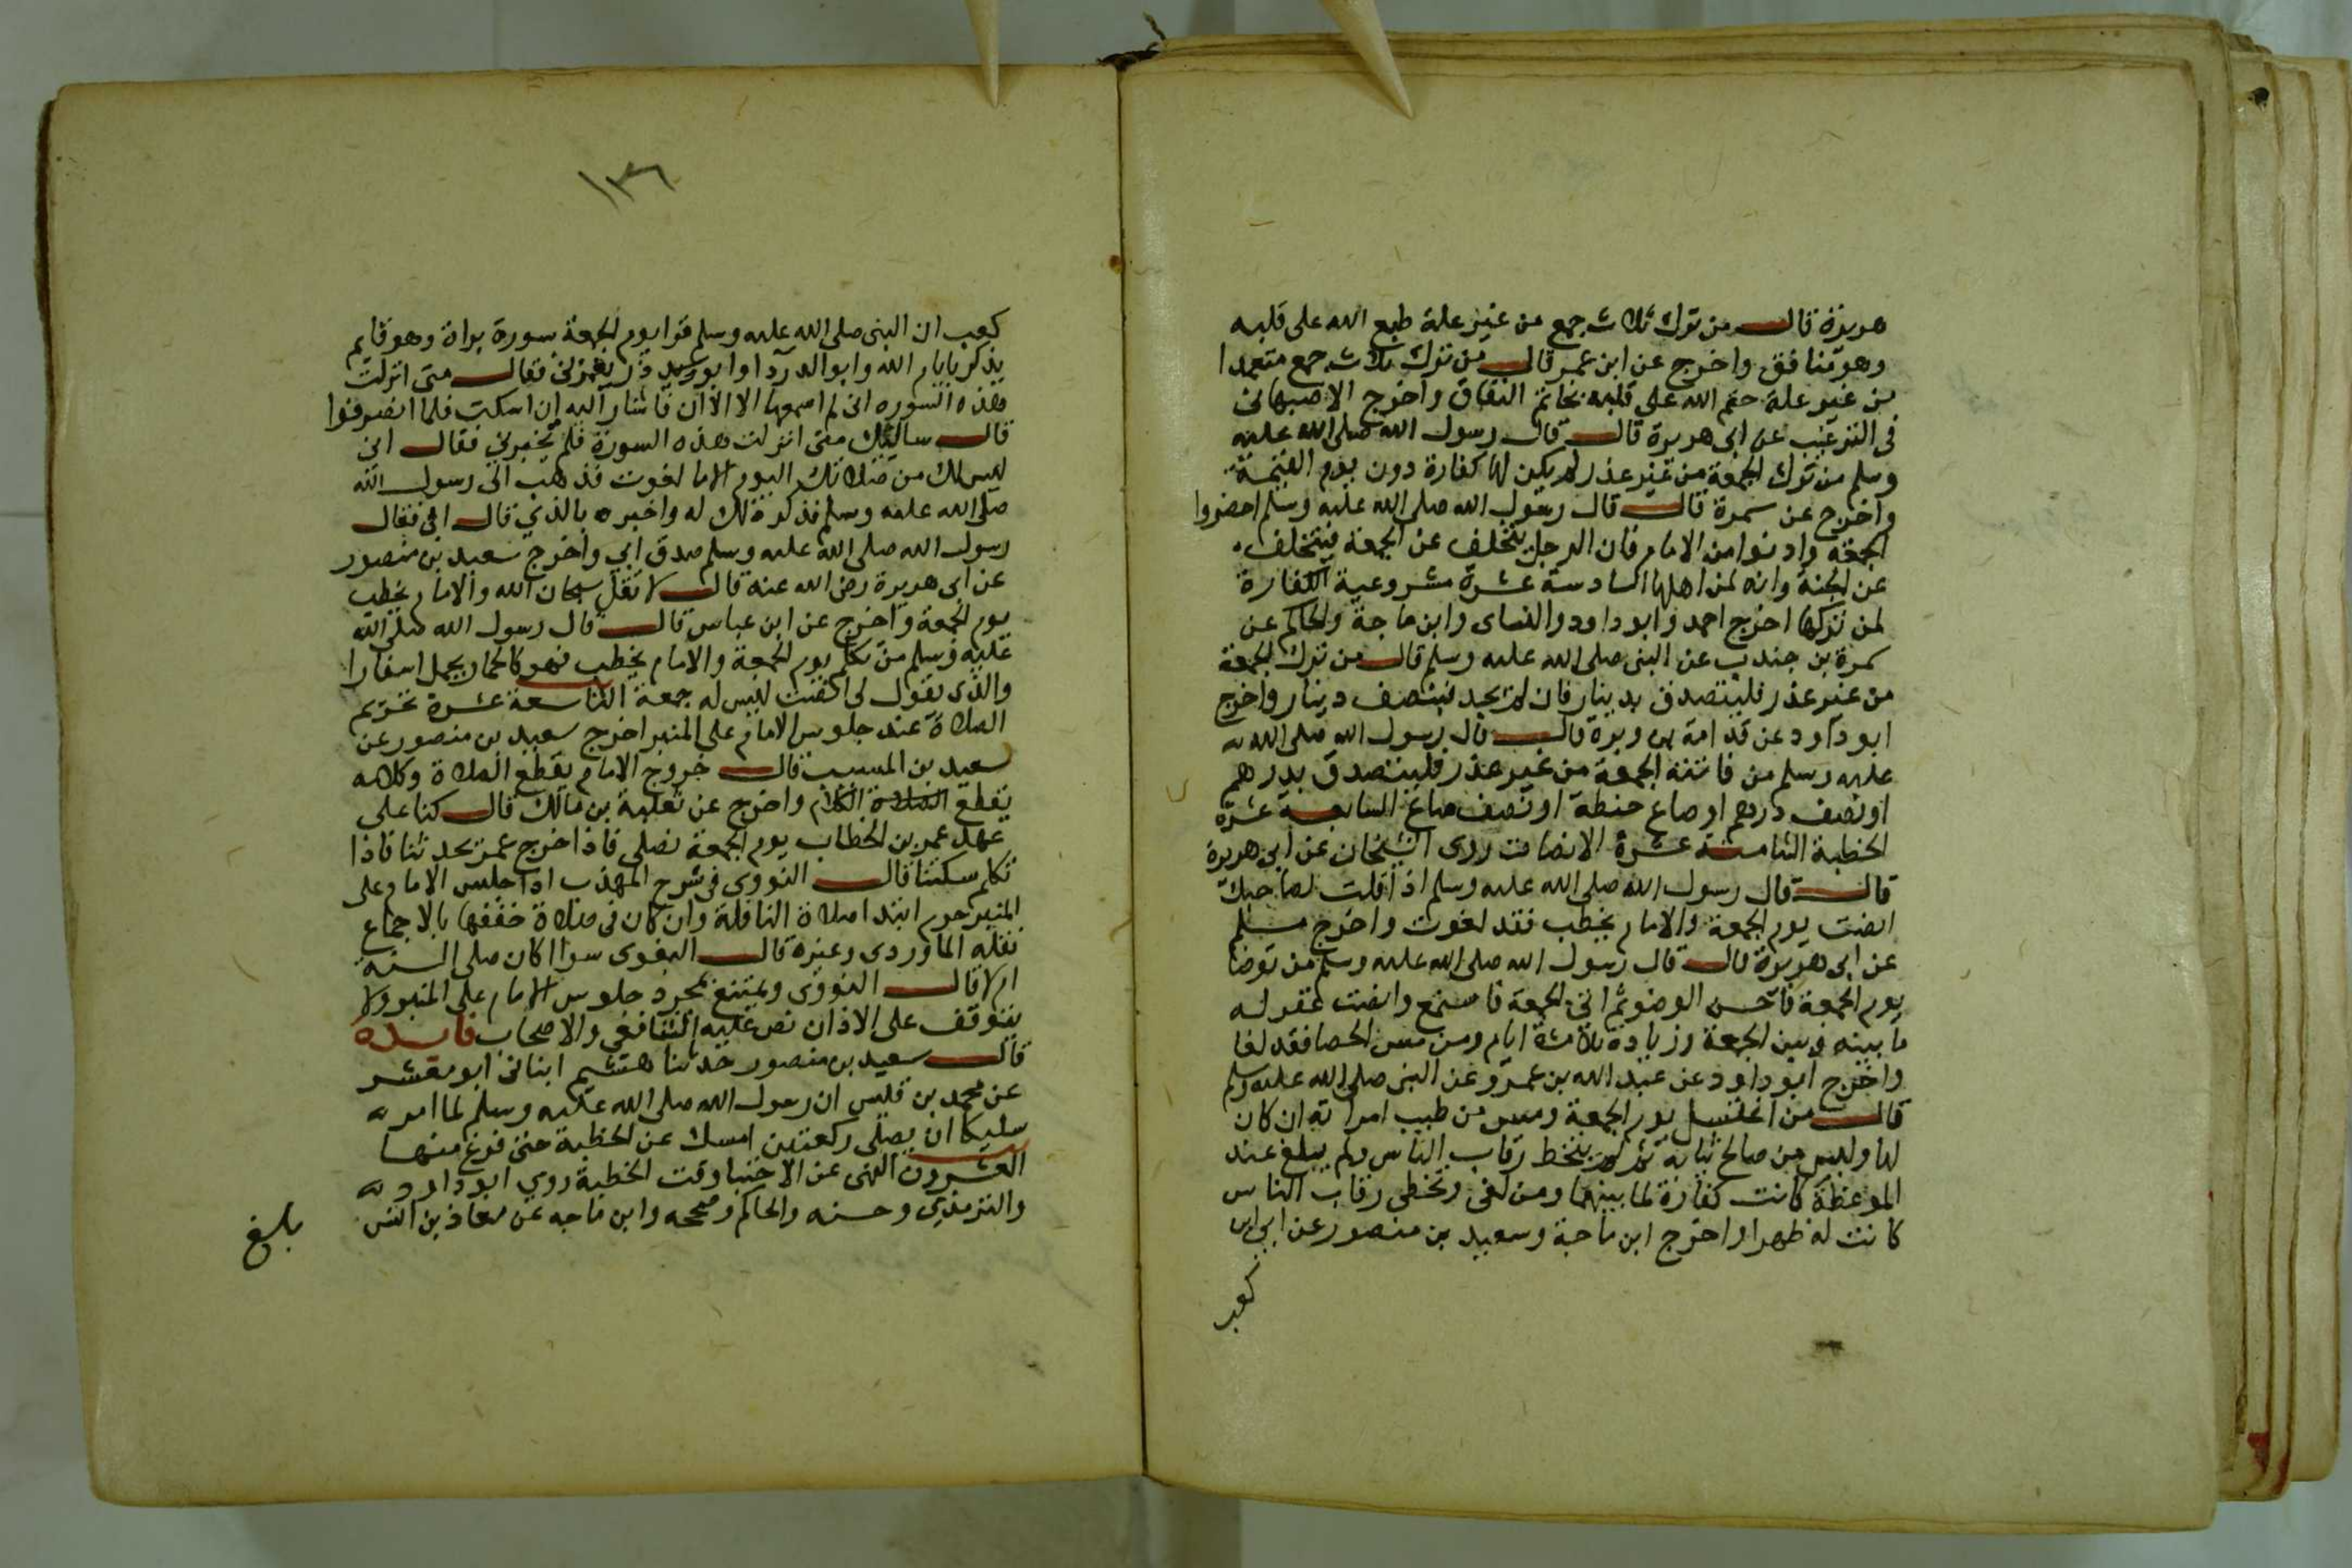 هريرة قال من ترك ثلاث جمع من غير علة طبع الله على قلبه
وهو منافق واخرج عن ابن عمر قال من ترك ثلاث جمع متعمدا
من غير علة ختم الله على قلبه بخاتم النفاق واخرج الاصبهانى
فى الترغيب عن ابى هريرة قال قال رسول الله صلى الله عليه
وسلم من ترك الجمعة من غير عذر لم يكن لها كفارة دون يوم القيمة
واخرج عن سمرة قال قال رسول الله صلى الله عليه وسلم احضروا
الجمعه وادنوا من الامام فان الرجل يتخلف عن الجمعة فيتخلف
عن الجنة وانه لمن اهلها السادسة عشرة مشروعية الكفارة
لمن تركها اخرج احمد وابو داود والنساى وابن ماجة والحاكم عن
سمرة بن جندب عن النبى صلى الله عليه وسلم قال من ترك الجمعة
من غير عذر فليتصدق بدينار فان لم يجد فنصف دينار واخرج
ابو داود عن قدامة بن وبرة قال قال رسول الله صلى الله
عليه وسلم من فاتته الجمعة من غير عذر فليتصدق بدرهم
او نصف درهم او صاع حنطة او نصف صاع السابعة عشرة
الخطبة الثامنة عشرة الانصات روى الشيخان عن ابى هريرة
قال قال رسول الله صلى الله عليه وسلم اذا قلت لصاحبك
انصت يوم الجمعة والامام يخطب فقد لغوت واخرج مسلم
عن ابى هريرة قال قال رسول الله صلى الله عليه وسلم من توضا
يوم الجمعة فاحسن الوضو ثم اتى الجمعة فاستمع وانصت غفر له
ما بينه وبين الجمعة وزيادة ثلاثة ايام ومن مس الحصا فقد لغا
واخرج ابو داود عن عبد الله بن عمرو عن النبى صلى الله عليه وسلم
قال من اغتسل يوم الجمعة ومس من طيب امراته ان كان
لها ولبس من صالح ثيابه ثم لم يتخط رقاب الناس ولم يبلغ عند
الموعظة كانت كفارة لما بينهما ومن لغى وتخطى رقاب الناس
كانت له ظهرا واخرج ابن ماجة وسعيد بن منصور عن ابى بن
كعب
١٣٦
كعب ان النبى صلى الله عليه وسلم قرا يوم الجمعة سورة براة وهو قايم
يذكر بايام الله وابو الدردا وابو ذر يغمزنى فقال متى انزلت
هذه السوره انى لم اسمعها الا الآن فاشار اليه ان اسكت فلما انصرفوا
قال سالتك متى انزلت هذه السورة فلم تخبرنى فقال ابى
ليس لك من صلاتك اليوم الا ما لغوت فذهب الى رسول الله
صلى الله عليه وسلم فذكر ذلك له واخبره بالذي قال ابى فقال
رسول الله صلى الله عليه وسلم صدق ابي واخرج سعيد بن منصور
عن ابى هريرة رضى الله عنه قال لا تقل سبحان الله والامام يخطب
يوم الجمعة واخرج عن ابن عباس قال قال رسول الله صلى الله
عليه وسلم من تكلم يوم الجمعة والامام يخطب فهو كالحمار يحمل اسفارا
والذى يقول له انصت ليس له جمعة التاسعة عشرة تحريم
الصلاة عند جلوس الامام على المنبر اخرج سعيد بن منصور عن
سعيد بن المسيب قال خروج الامام يقطع الصلاة وكلامه
يقطع الصلاة الكلام واخرج عن ثعلبة بن مالك قال كنا على
عهد عمر بن الخطاب يوم الجمعة نصلى فاذا خرج عمر تحدثنا فاذا
تكلم سكتنا قال النووى فى شرح المهذب اذا جلس الامام على
المنبر حرم ابتدا صلاة النافلة وان كان فى صلاة خففها بالاجماع
نقله الماوردى وغيره قال البغوى سوا اكان صلى السنة
ام لا قال النووى ويمتنع بمجرد جلوس الامام على المنبر ولا
يتوقف على الاذان نص عليه الشافعي والاصحاب فايدة
قال سعيد بن منصور حدثنا هشيم انبانى ابو معشر
عن محمد بن قيس ان رسول الله صلى الله عليه وسلم لما امر
سليكا ان يصلى ركعتين امسك عن الخطبة حتى فرغ منها
العشرون النهى عن الاحتبا وقت الخطبة روي ابو داود
والترمذي وحسنه والحاكم وصححه وابن ماجه عن معاذ بن انس
بلغ